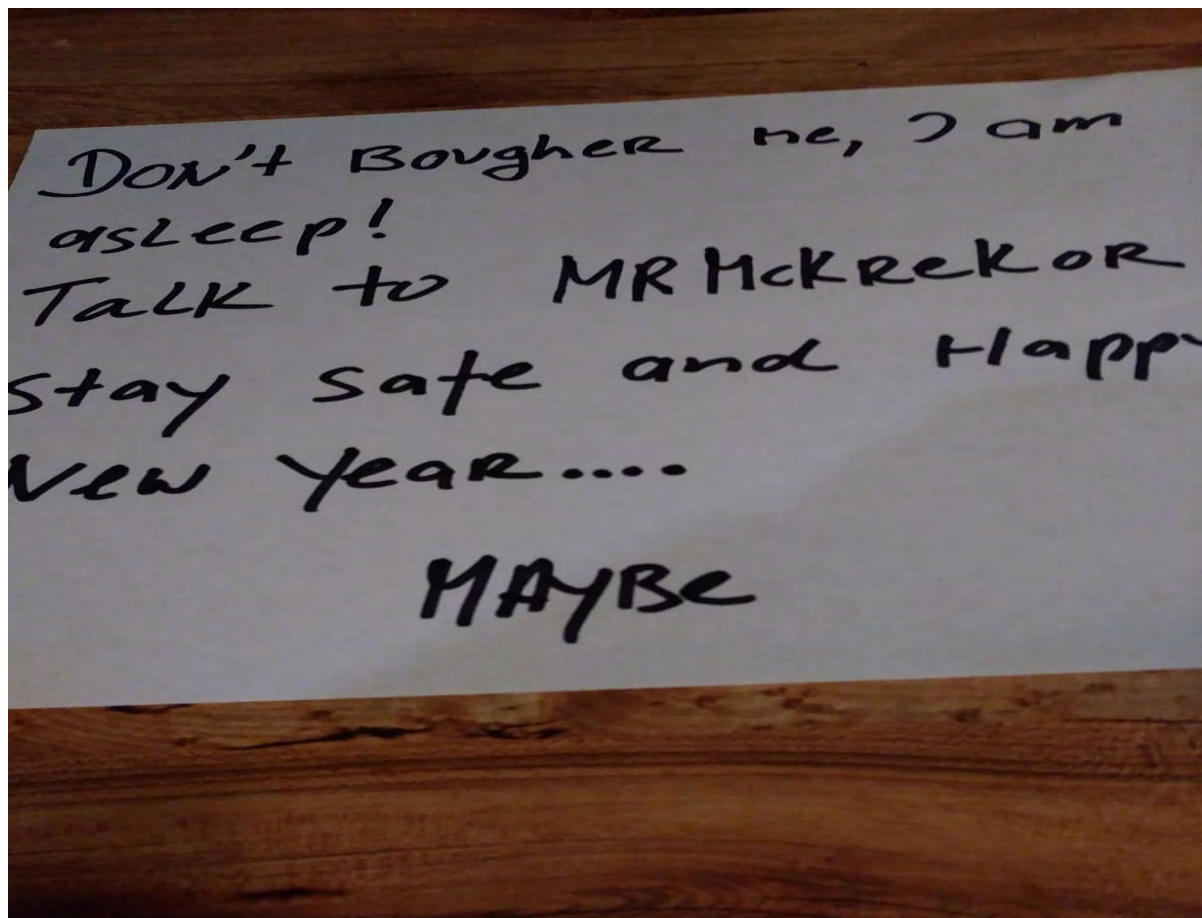 Don't Bougher me, I am
asleep!
Talk to MR McKRekoR
Stay safe and Happy
New Year....
MAYBe